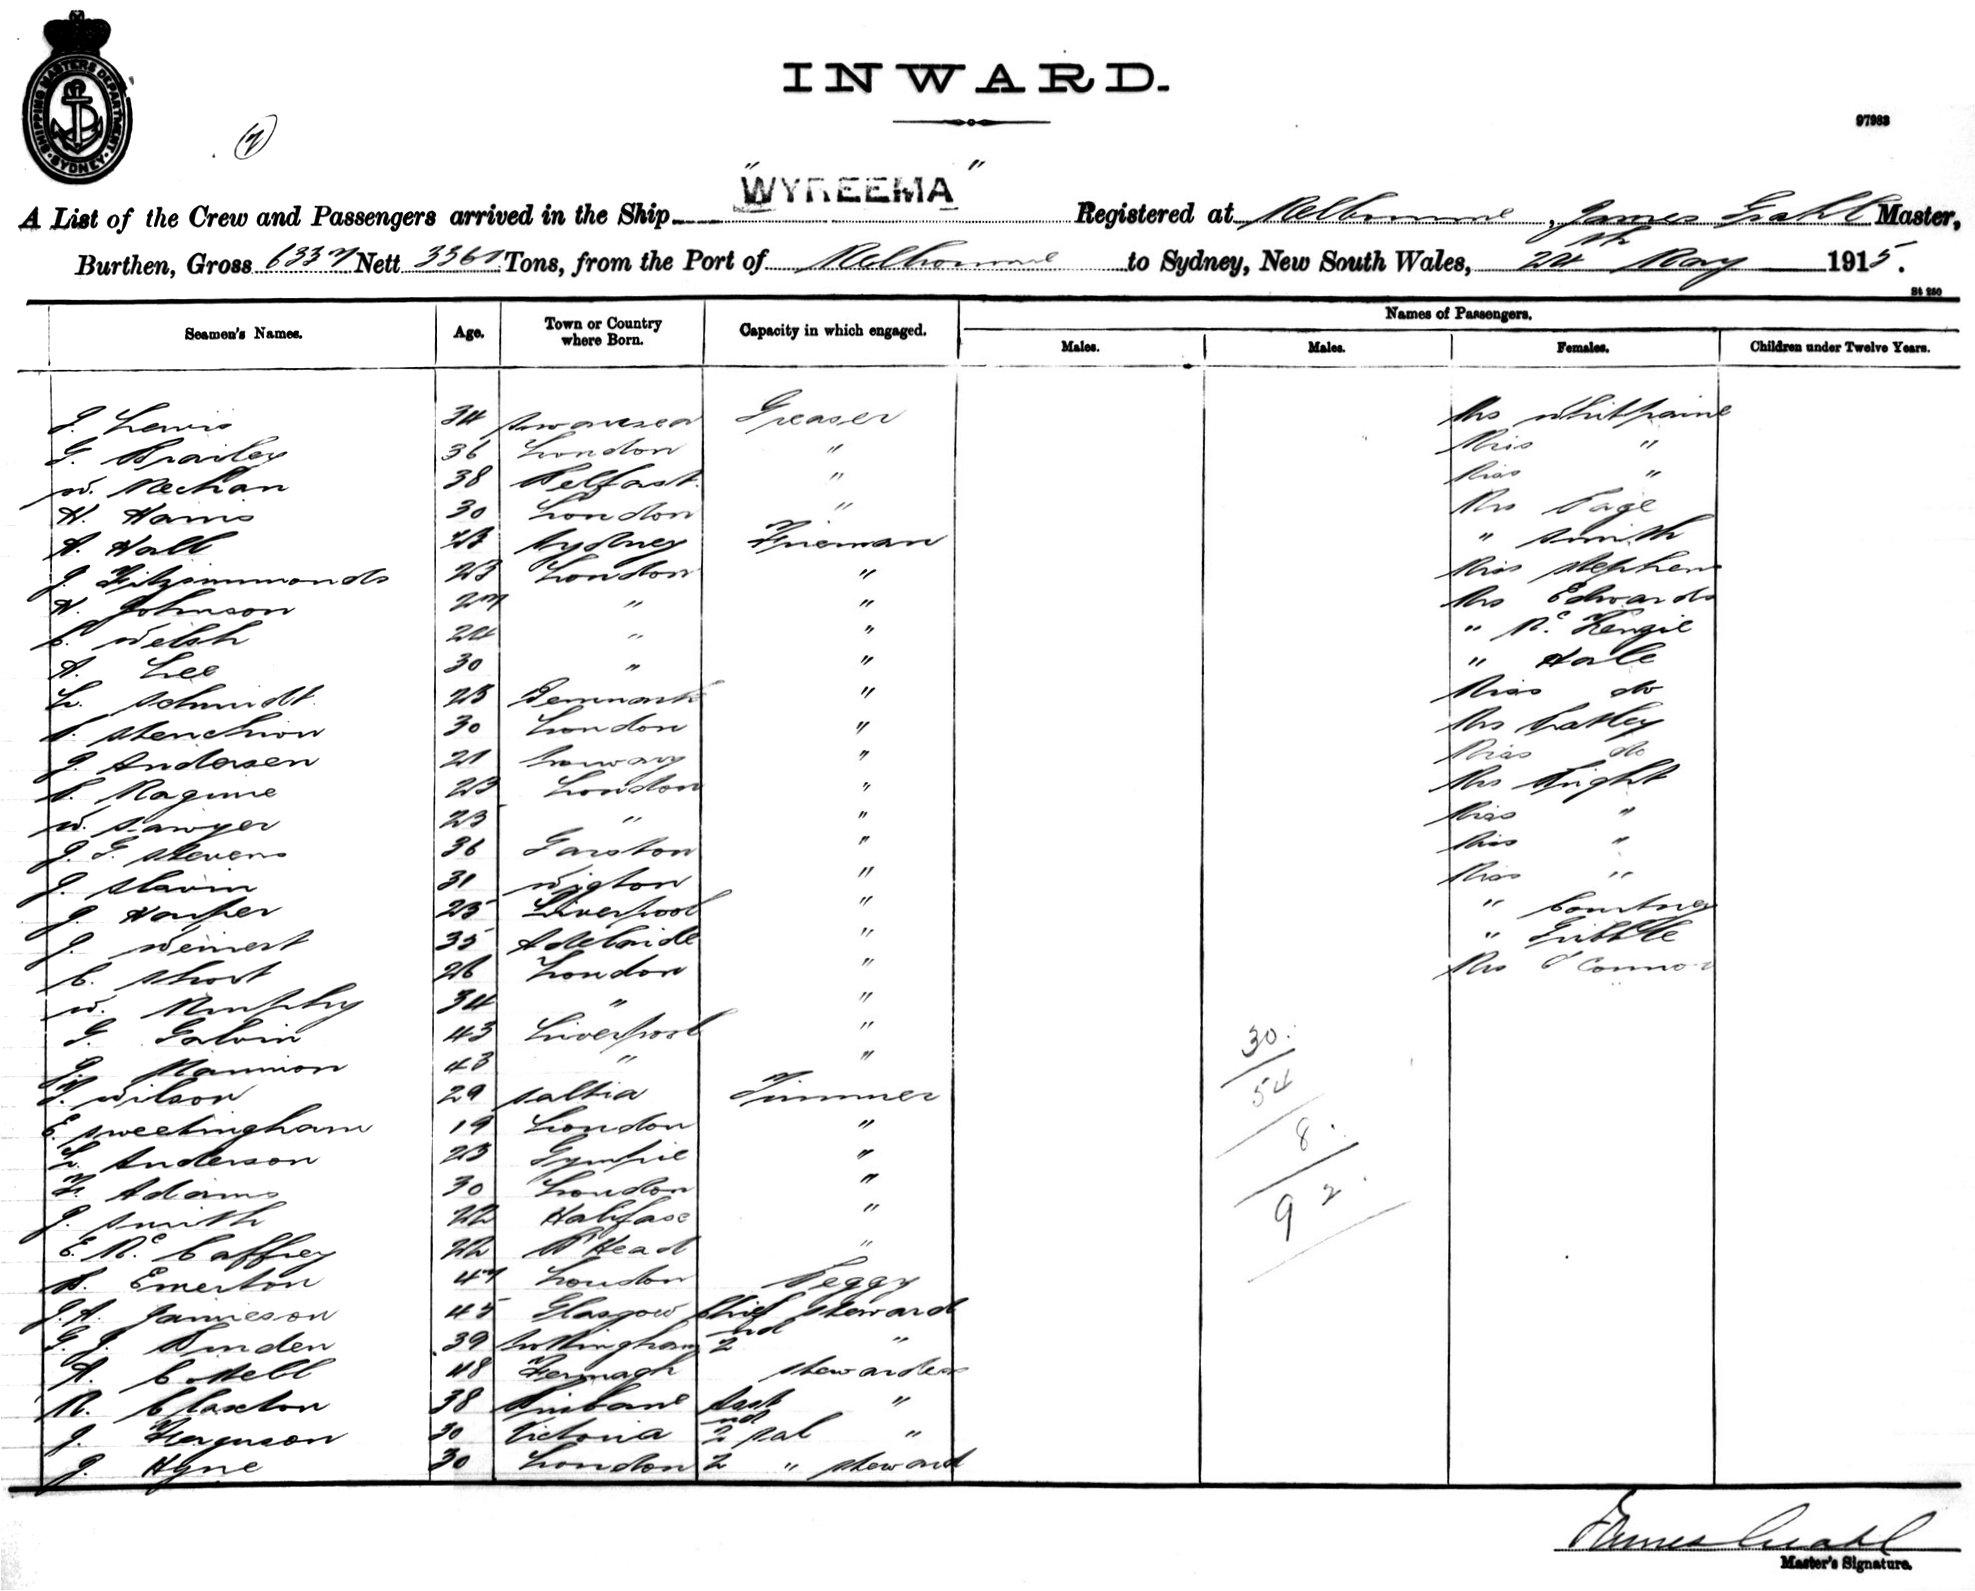 INWARD.
SHIPPING MASTERS DEPARTMENT
SYDNEY
97983
"WYREEMA"
A List of the Crew and Passengers arrived in the Ship Registered at Melbourne, James Grahl Master,
Burthen, Gross 6337 Nett 3361 Tons, from the Port of Melbourne to Sydney, New South Wales, 24th May 1915.
St 250
Seamen's Names. Age. Town or Country where Born. Capacity in which engaged. Names of Passengers.
Males. Males. Females. Children under Twelve Years.
J. Lewis 34 Swansea Greaser Mrs Whitpaine
G. Brailey 36 London " Miss "
W. Mechan 38 Belfast " Miss "
H. Harris 30 London " Mrs Page
A. Hall 23 Sydney Fireman " Smith
J Fitzsimmonds 23 London " Miss Stephens
H. Johnson 27 " " Mrs Edwards
C. Welsh 24 " " " Mc Kenzie
A. Lee 30 " " " Hale
L. Schmidt 25 Denmark " Miss do
S. Stenchion 30 London " Mrs Catley
J. Andersen 21 Norway " Miss do
Maguire 23 London " Mrs Wright
W. Sawyer 25 " " Miss "
J. G. Stevens 36 Garston " Miss "
J. Slavin 31 Wigton " Miss "
J. Harper 25 Liverpool " " Courtney
J. Weinert 35 Adelaide " " Gribble
C. Short 26 London " Mrs O'Connor
W. Murphy 34 " "
G. Galvin 43 Liverpool "
J. Mannion 43 " "
F. Wilson 29 Saltia Trimmer
E. Sweetingham 19 London "
L. Anderson 23 Gympie "
F. Adams 30 London "
J. Smith 22 Halifax "
E. Mc Caffrey 22 B'Head "
Emerton 47 London Peggy
J.A. Jamieson 45 Glasgow Chief Steward
G. J. Binden 39 Nottingham 2nd "
A. C. Nell 48 Fermagh Stewardess
M. Claxton 38 Brisbane Asst "
J. Ferguson 30 Victoria 2nd Sal "
J. Hyne 30 London 2 " Steward
30.
54
8.
92.
James Grahl
Master's Signature.